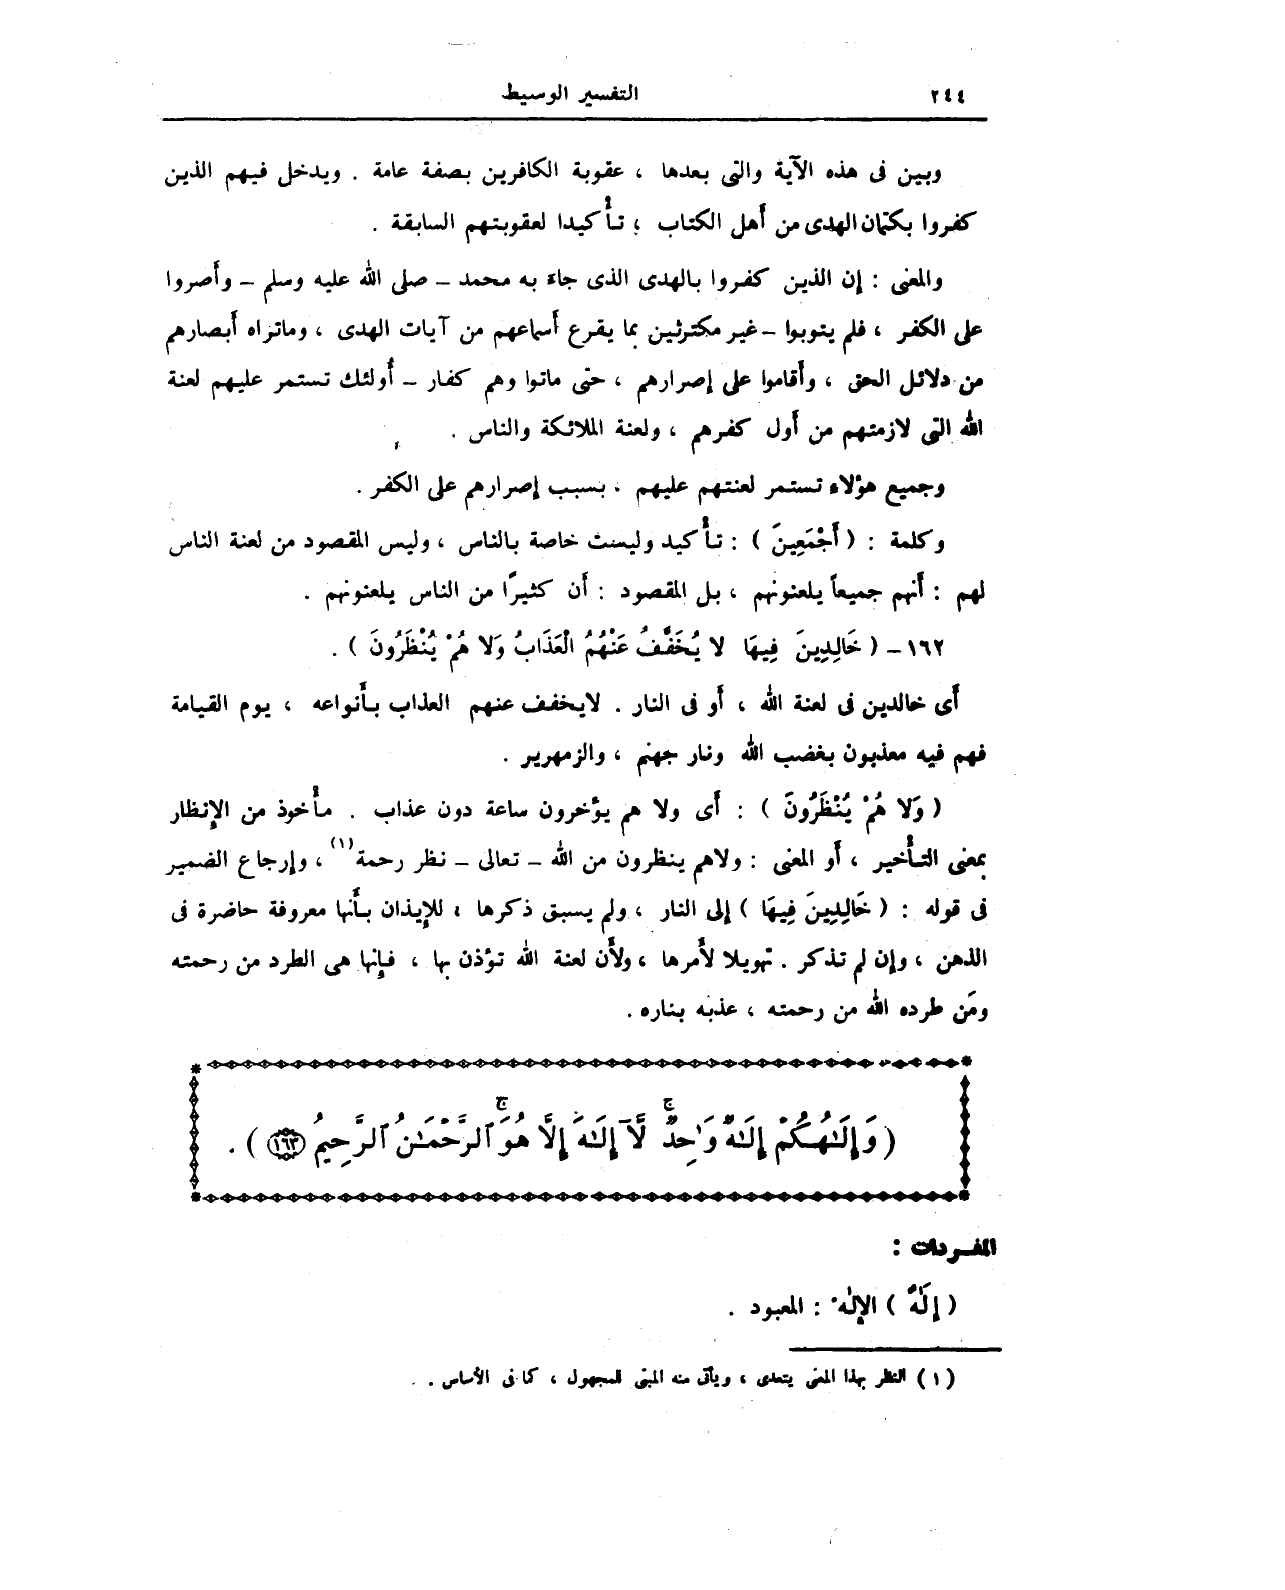 ٢٤٤
التفسير الوسيط
وبين فى هذه الآية والتى بعدها ، عقوبة الكافرين بصفة عامة . ويدخل فيهم الذين
كفروا بكتمان الهدى من أهل الكتاب ؛ تأكيدا لعقوبتهم السابقة .
والمعنى : إن الذين كفروا بالهدى الذى جاء به محمد – صلى الله عليه وسلم – وأصروا
على الكفر ، فلم يتوبوا – غير مكترثين بما يقرع أسماعهم من آيات الهدى ، وماتراه أبصارهم
من دلائل الحق ، وأقاموا على إصرارهم ، حتى ماتوا وهم كفار – أولئك تستمر عليهم لعنة
الله التى لازمتهم من أول كفرهم ، ولعنة الملائكة والناس .
وجميع هؤلاء تستمر لعنتهم عليهم ، بسبب إصرارهم على الكفر .
وكلمة : ( أَجْمَعِينَ ) : تأكيد وليست خاصة بالناس ، وليس المقصود من لعنة الناس
لهم : أنهم جميعاً يلعنونهم ، بل المقصود : أن كثيرًا من الناس يلعنونهم .
١٦٢ – ( خَالِدِينَ فِيهَا لا يُخَفَّفُ عَنْهُمُ الْعَذَابُ وَلا هُمْ يُنْظَرُونَ ) .
أى خالدين فى لعنة الله ، أو فى النار . لايخفف عنهم العذاب بأنواعه ، يوم القيامة
فهم فيه معذبون بغضب الله ونار جهنم ، والزمهرير .
( وَلا هُمْ يُنْظَرُونَ ) : أى ولا هم يؤخرون ساعة دون عذاب . مأخوذ من الإنظار
بمعنى التأخير ، أو المعنى : ولاهم ينظرون من الله – تعالى – نظر رحمة(١) ، وإرجاع الضمير
فى قوله : ( خَالِدِينَ فِيهَا ) إلى النار ، ولم يسبق ذكرها ، للإيذان بأنها معروفة حاضرة فى
الذهن ، وإن لم تذكر . تهويلا لأمرها ، ولأن لعنة الله تؤذن بها ، فإنها هى الطرد من رحمته
ومَن طرده الله من رحمته ، عذبه بناره .
( وَإِلَٰهُكُمْ إِلَٰهٌ وَٰحِدٌ ۖ لَّآ إِلَٰهَ إِلَّا هُوَ ۚ ٱلرَّحْمَٰنُ ٱلرَّحِيمُ ١٦٣ ) .
المفردات :
( إِلَٰهٌ ) الإِلٰه : المعبود .
( ١ ) النظر بهذا المعنى يتعدى ، ويأتى منه المبنى للمجهول ، كما فى الأساس .